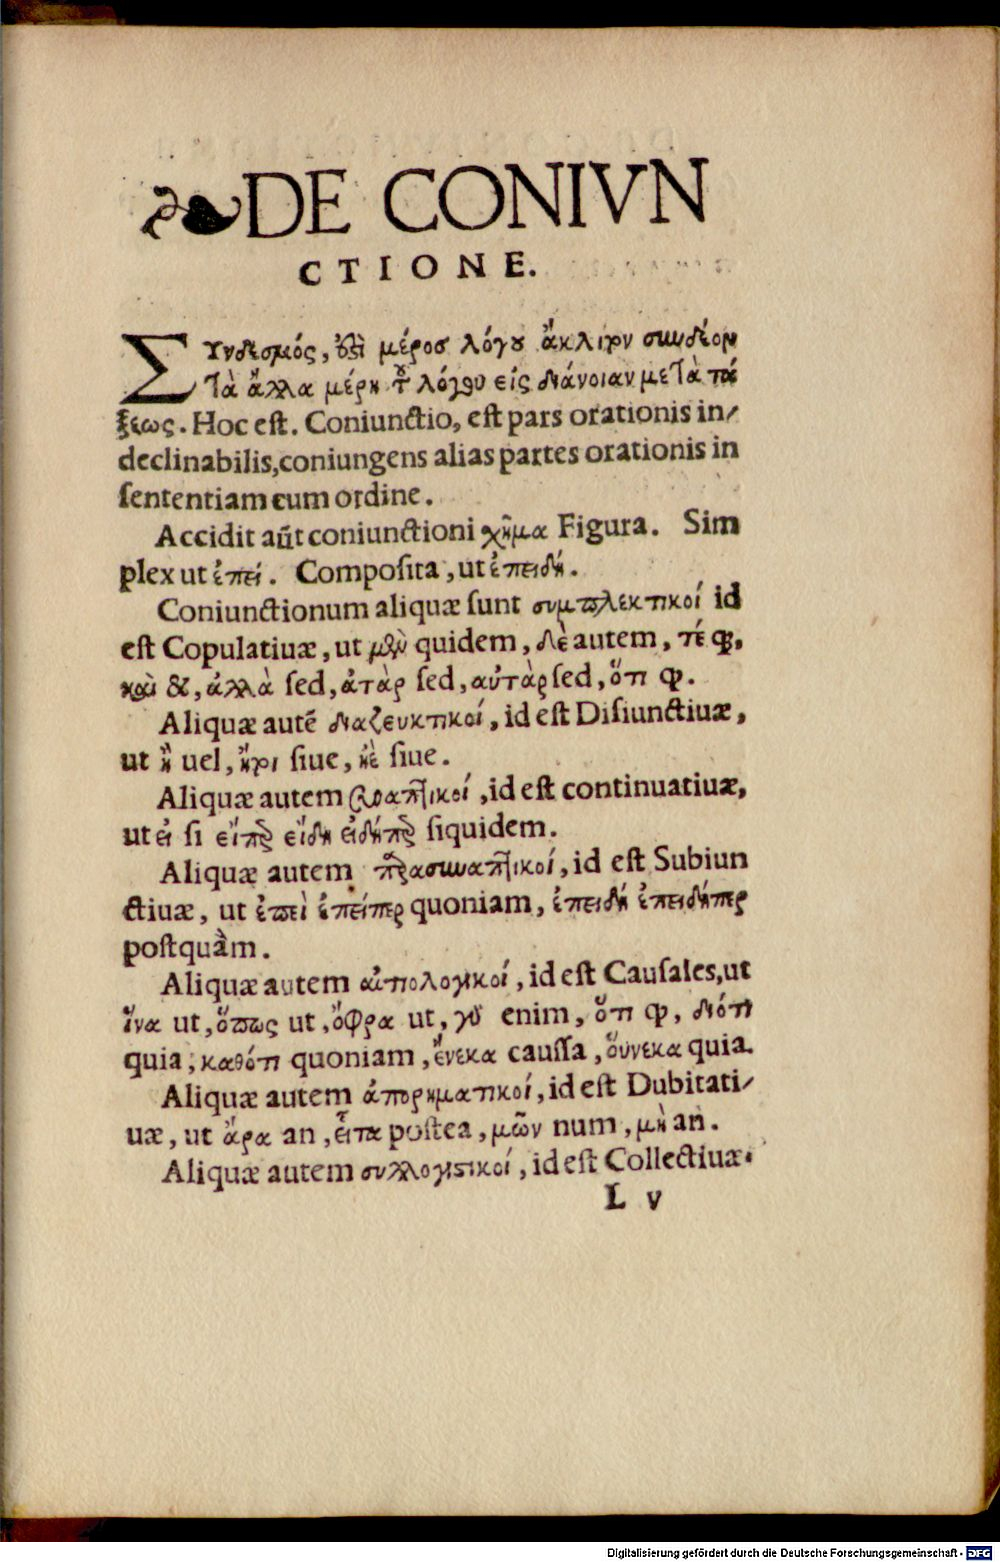 ❧DE CONIVN
CTIONE.
ΣΥνδεσμός, ἐστὶ μέρος λόγου ἄκλιτον συνδέον
τὰ ἄλλα μέρη τοῦ λόγου εἰς διάνοιαν μετὰ τά
ξεως. Hoc est. Coniunctio, est pars orationis in-
declinabilis,coniungens alias partes orationis in
sententiam cum ordine.
Accidit aūt coniunctioni χῆμα Figura. Sim
plex ut ἐπεί. Composita, ut ἐπειδή.
Coniunctionum aliquæ sunt συμπλεκτικοί id
est Copulatiuæ, ut μὲν quidem, δὲ autem, τέ ꝗ,
καὶ &, ἀλλὰ sed, ἀτὰρ sed, αὐτὰρ sed, ὅτι ꝙ.
Aliquæ autē διαζευκτικοί, id est Disiunctiuæ,
ut ἢ uel, ἤτοι siue, ἠὲ siue.
Aliquæ autem συναπτικοί, id est continuatiuæ,
ut εἰ si εἴπερ εἴδη εἰδήπερ siquidem.
Aliquæ autem παρασυναπτικοί, id est Subiun
ctiuæ, ut ἐπεὶ ἐπείπερ quoniam, ἐπειδή ἐπειδήπερ
postquàm.
Aliquæ autem αἰτιολογικοί, id est Causales,ut
ἵνα ut, ὅπως ut, ὄφρα ut, γὰρ enim, ὅτι ꝙ, διότι
quia, καθότι quoniam, ἕνεκα caussa, οὕνεκα quia.
Aliquæ autem ἀπορηματικοί, id est Dubitati-
uæ, ut ἆρα an, εἶτα postea, μῶν num, μὴ an.
Aliquæ autem συλλογιστικοί, id est Collectiuæ.
L v
Digitalisierung gefördert durch die Deutsche Forschungsgemeinschaft - DFG